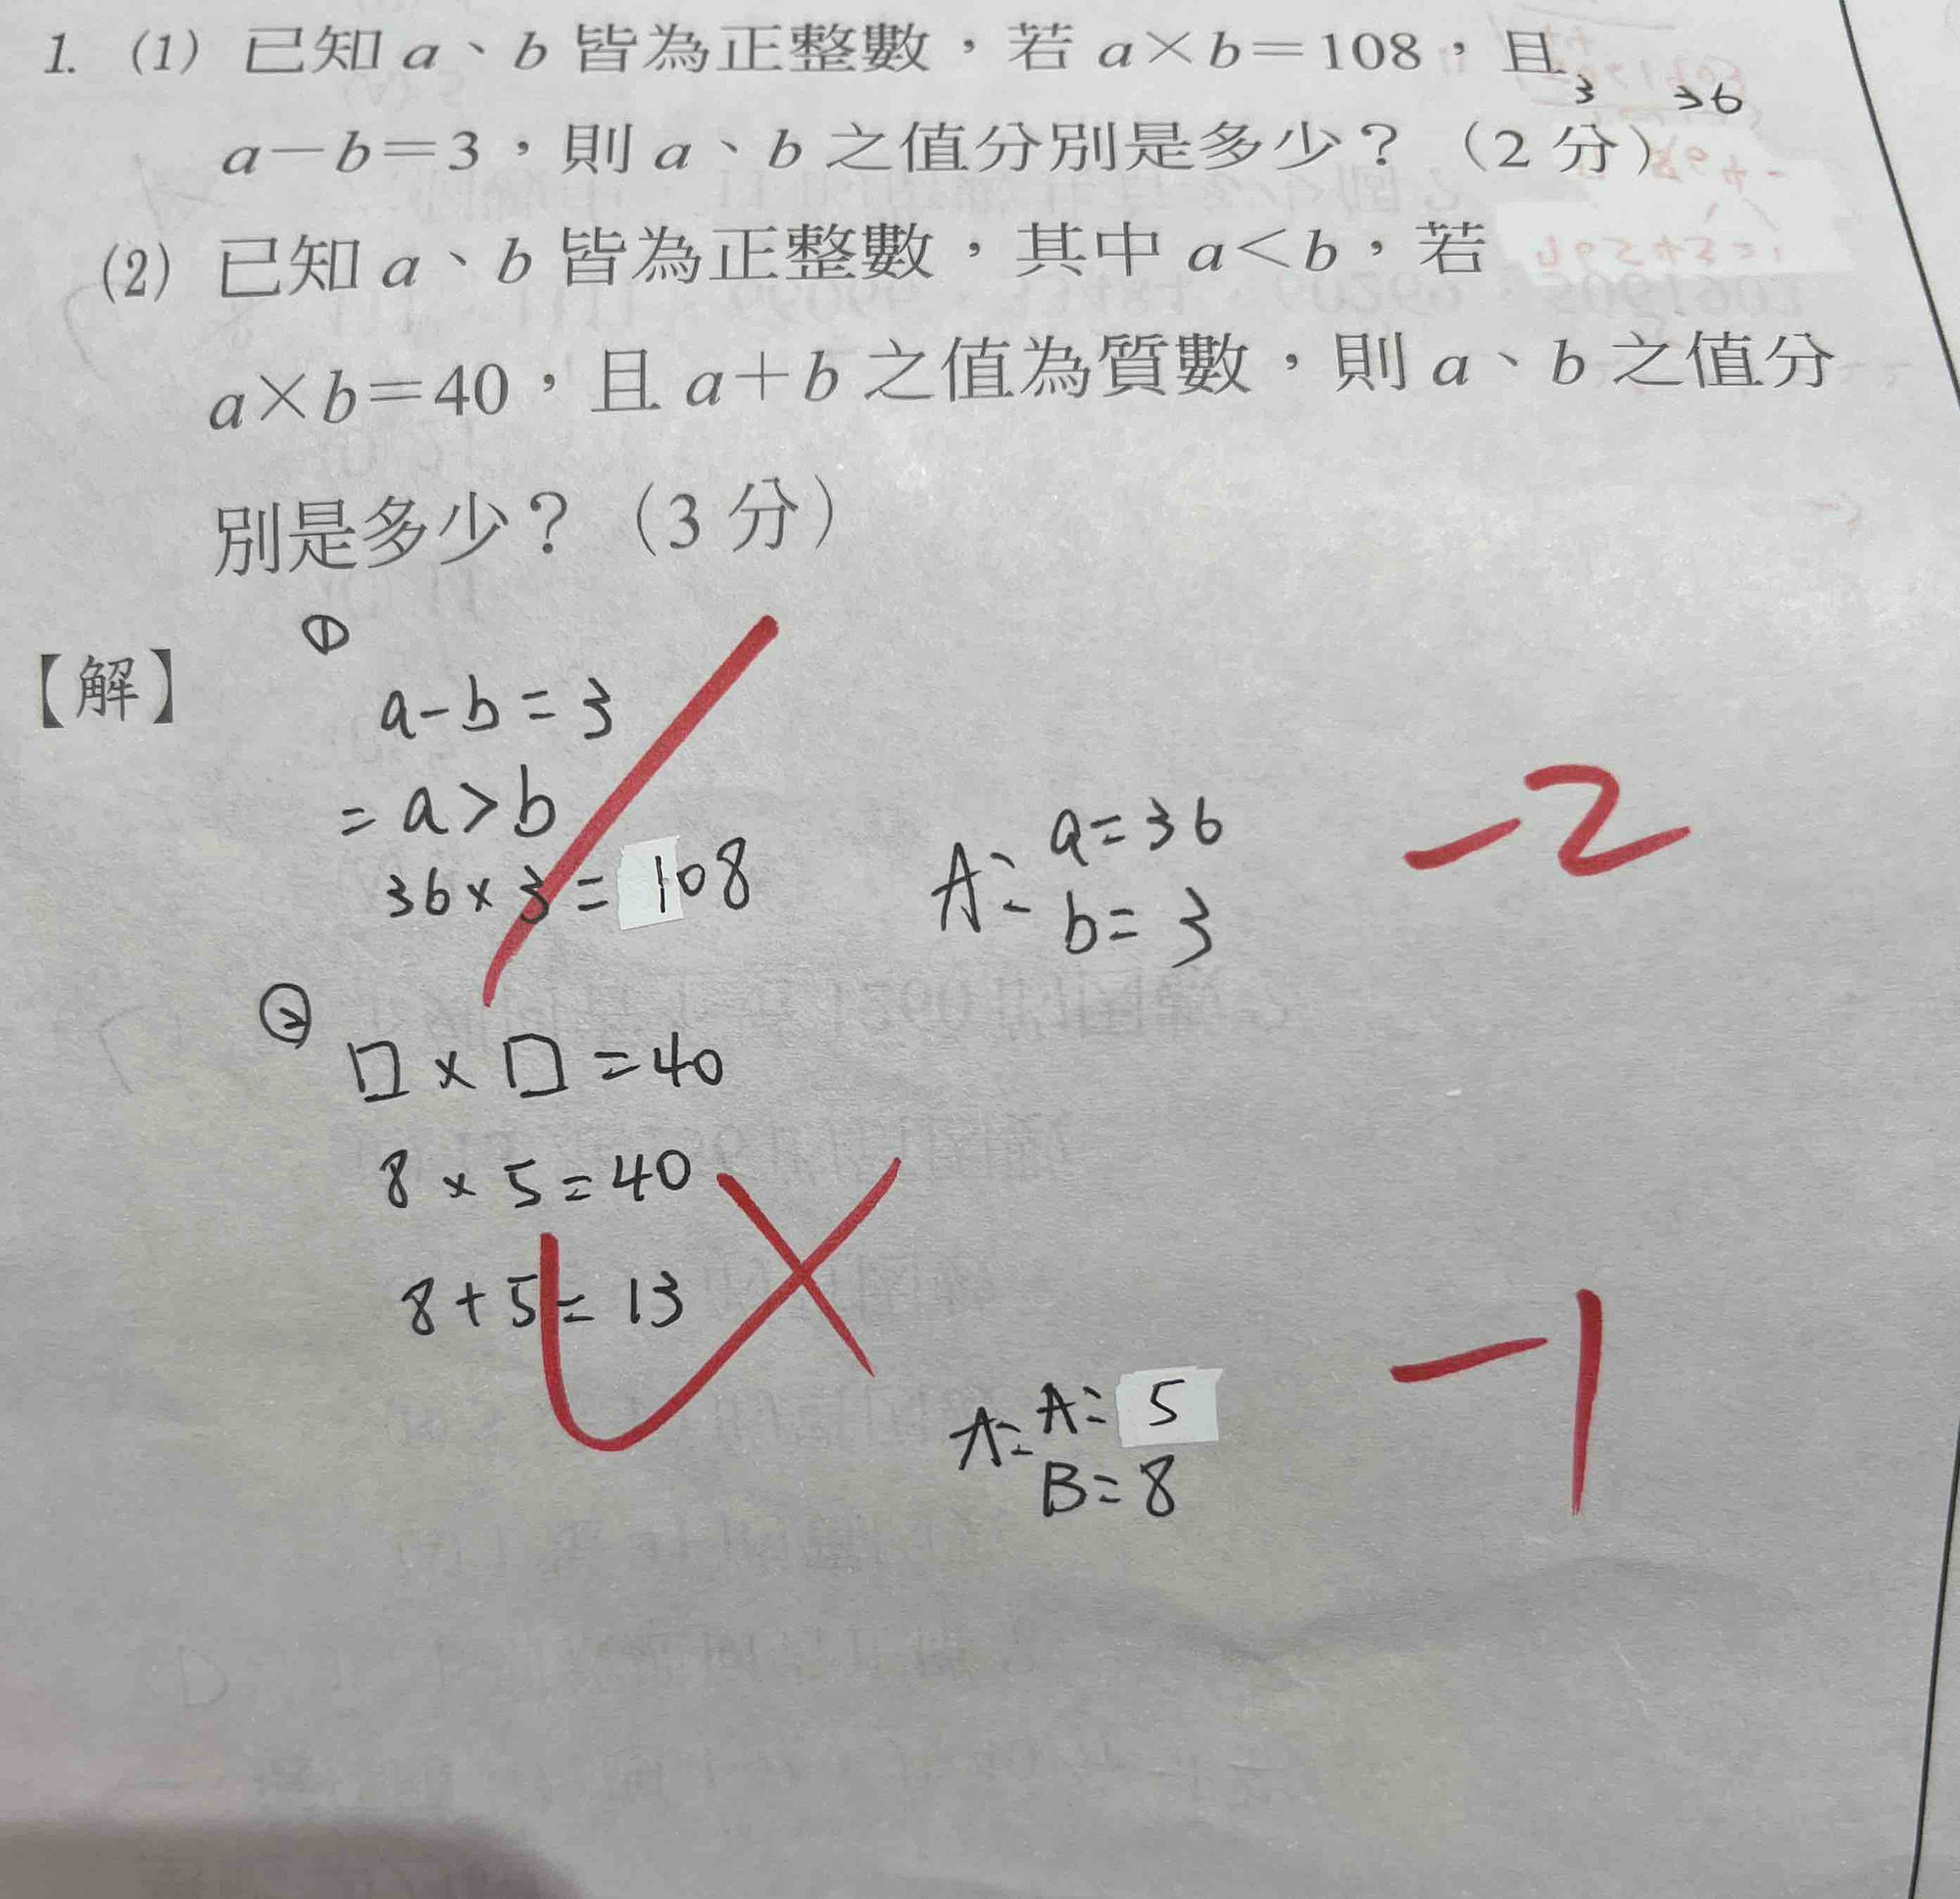 1. (1) 已知 a、b 皆為正整數，若 a×b=108，且
3 36
a-b=3，則 a、b 之值分別是多少？（2 分）
(2) 已知 a、b 皆為正整數，其中 a<b，若
a×b=40，且 a+b 之值為質數，則 a、b 之值分
別是多少？（3 分）
【解】
①
a-b=3
=a>b
36×3=108
A: a=36
b=3
-2
②
□×□=40
8×5=40
8+5=13
A: A=5
B=8
-1